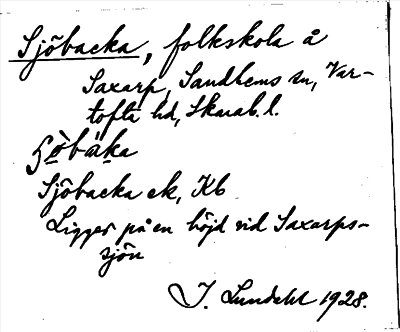 Sjöbacka, folkskola å
Saxarp, Sandhems sn, Var-
tofta hd, Skarab. l.
Sjöbacka ek, Kb
Ligger på en höjd vid Saxarps-
sjön
J. Lundahl 1928.